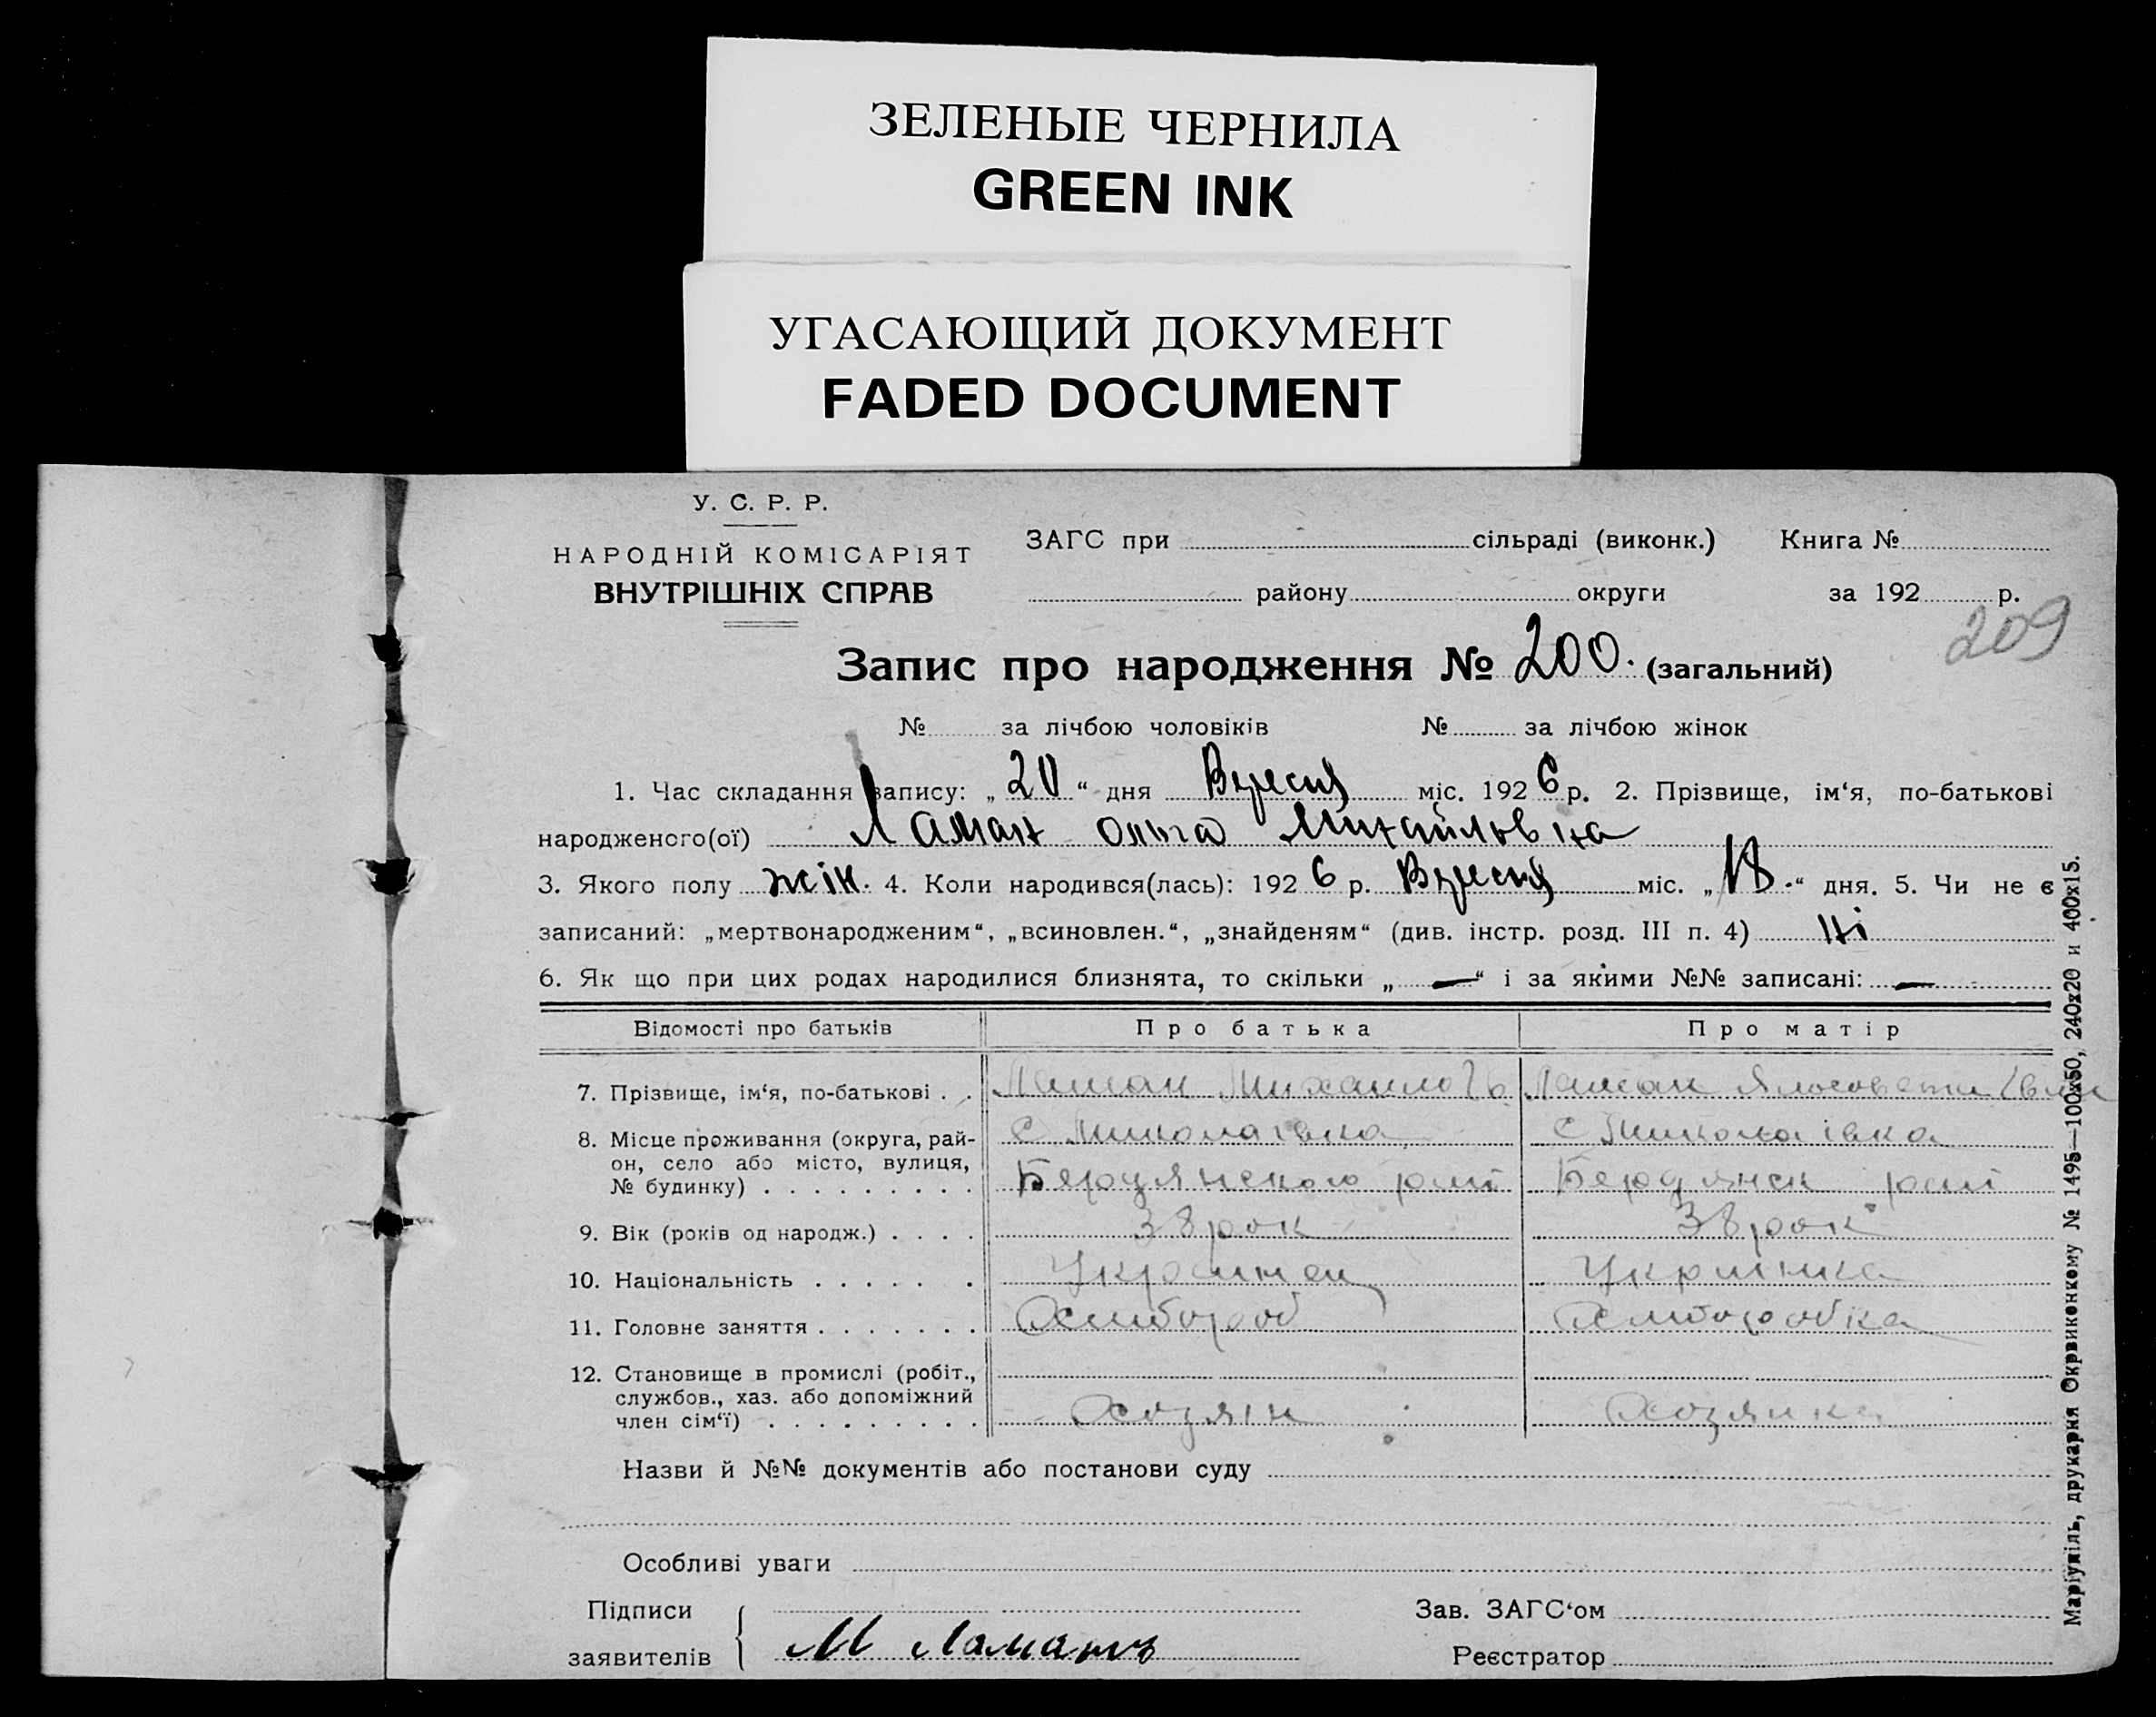 ЗЕЛЕНЫЕ ЧЕРНИЛА
GREEN INK
УГАСАЮЩИЙ ДОКУМЕНТ
FADED DOCUMENT
У. С. Р. Р.
НАРОДНІЙ КОМІСАРІЯТ
ВНУТРІШНІХ СПРАВ
ЗАГС при сільраді (виконк.) Книга №
району округи за 192 р.
209
Запис про народження № 200. (загальний)
№ за лічбою чоловіків № за лічбою жінок
1. Час складання запису: „20“ дня Вересня міс. 1926 р. 2. Прізвище, ім‘я, по-батькові
народженого(ої) Ламан Ольга Михайловна
3. Якого полу жін. 4. Коли народився(лась): 1926 р. Вересня міс. „18.“ дня. 5. Чи не є
записаний: „мертвонародженим“, „всиновлен.“, „знайденям“ (див. інстр. розд. III п. 4) ні
6. Як що при цих родах народилися близнята, то скільки „—“ і за якими №№ записані: —
Відомості про батьків Про батька Про матір
7. Прізвище, ім‘я, по-батькові . . Ламан Михаило Ламан
8. Місце проживання (округа, рай-
он, село або місто, вулиця,
№ будинку) . . . . . . . . .
с Миколаівка с Миколаівка
Бердянского рай Бердянск рай
9. Вік (років од народж.) . . . . 38 рок 38 рок
10. Національність . . . . . . Украинец Украінка
11. Головне заняття . . . . . . . Хлибороб Хлиборобка
12. Становище в промислі (робіт.,
службов., хаз. або допоміжний
член сім‘ї) . . . . . . . . .
Хозяін Хозяйка
Назви й №№ документів або постанови суду
Особливі уваги
Підписи
заявителів
М Ламанъ
Зав. ЗАГС‘ом
Реєстратор
Маріупіль, друкарня Окрвиконкому № 1495—100х50, 240х20 и 400х15.